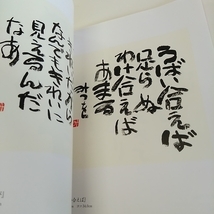 うばい合えば
足らぬ
わけ合えば
あまる
みつを
なんでもきれいに
見えるんだ
なあ